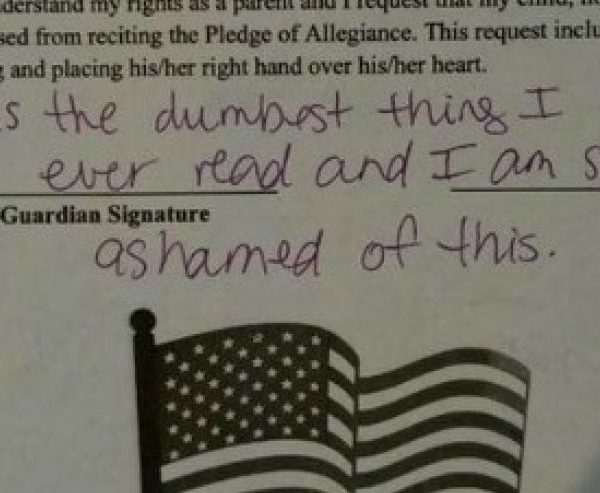 my rights as a parent and I request that my child,
from reciting the Pledge of Allegiance. This request
and placing his/her right hand over his/her heart.
the dumbest thing I
ever read and I am
Guardian Signature
ashamed of this.